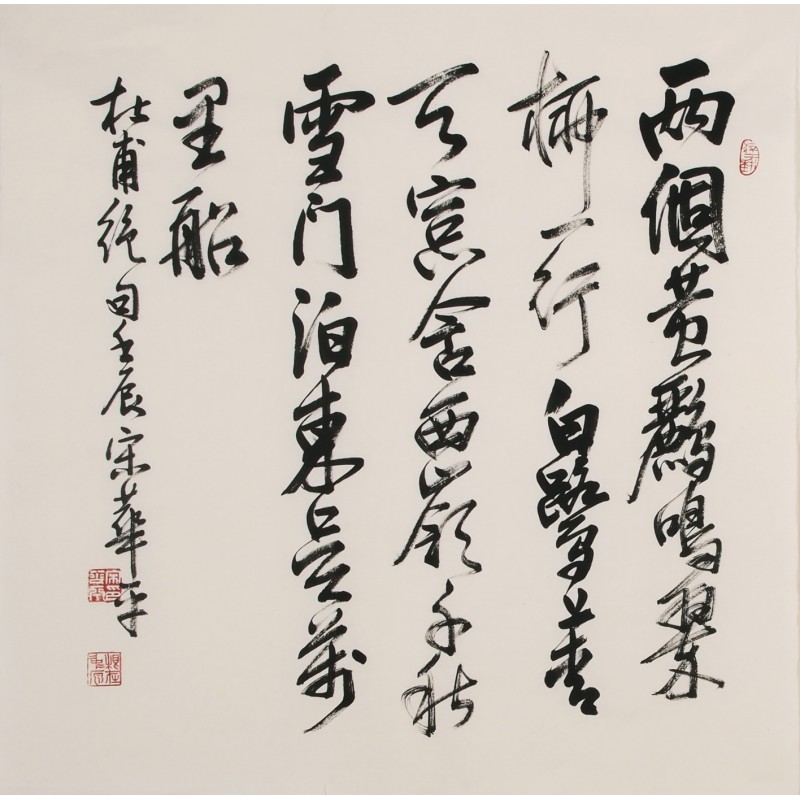 两個黄鸝鳴翠
柳一行白鷺上青
天窓含西嶺千秋
雪门泊東吴萬
里船
杜甫絶句壬辰宋華平